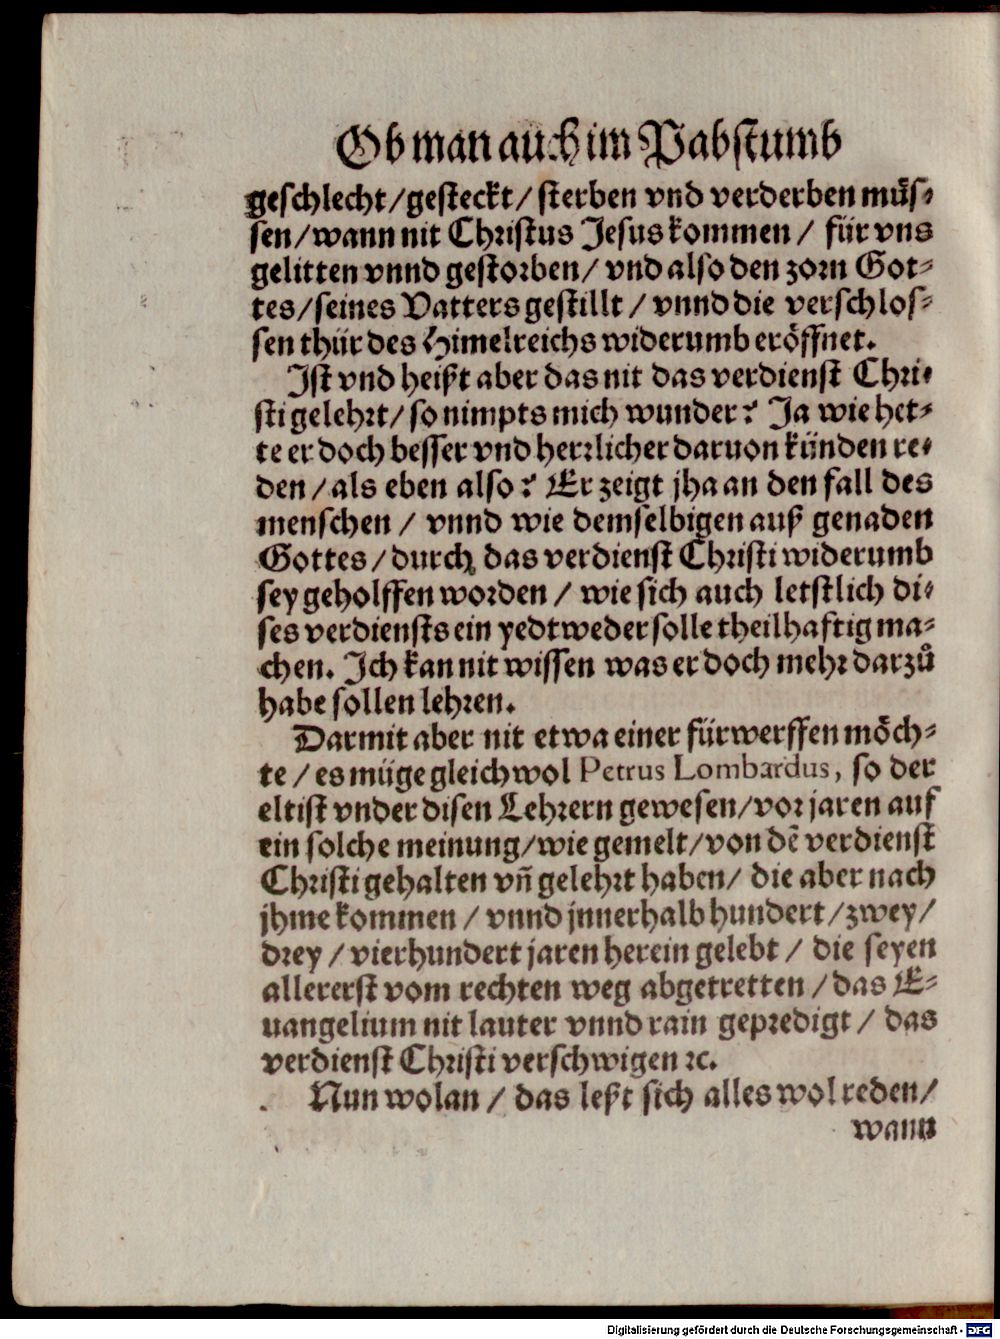 Ob man auch im Pabstumb
geschlecht/gesteckt/ sterben vnd verderben müs-
sen/wann nit Christus Jesus kommen / für vns
gelitten vnnd gestorben/ vnd also den zorn Got-
tes/seines Vatters gestillt / vnnd die verschlos-
sen thür des Himelreichs widerumb eröffnet.
Ist vnd heißt aber das nit das verdienst Chri-
sti gelehrt/ so nimpts mich wunder? Ja wie het-
te er doch besser vnd herrlicher daruon künden re-
den / als eben also? Er zeigt jha an den fall des
menschen / vnnd wie demselbigen auß genaden
Gottes / durch das verdienst Christi widerumb
sey geholffen worden / wie sich auch letstlich di-
ses verdiensts ein yedtweder solle theilhaftig ma-
chen. Ich kan nit wissen was er doch mehr darzů
habe sollen lehren.
Darmit aber nit etwa einer fürwerffen möch-
te / es müge gleichwol Petrus Lombardus, so der
eltist vnder disen Lehrern gewesen/vor jaren auf
ein solche meinung/wie gemelt/von dē verdienst
Christi gehalten vn̄ gelehrt haben/ die aber nach
jhme kommen / vnnd jnnerhalb hundert/zwey/
drey / vierhundert jaren herein gelebt / die seyen
allererst vom rechten weg abgetretten / das E-
uangelium nit lauter vnnd rain gepredigt / das
verdienst Christi verschwigen ꝛc.
Nun wolan / das leßt sich alles wol reden/
wann
Digitalisierung gefördert durch die Deutsche Forschungsgemeinschaft - DFG